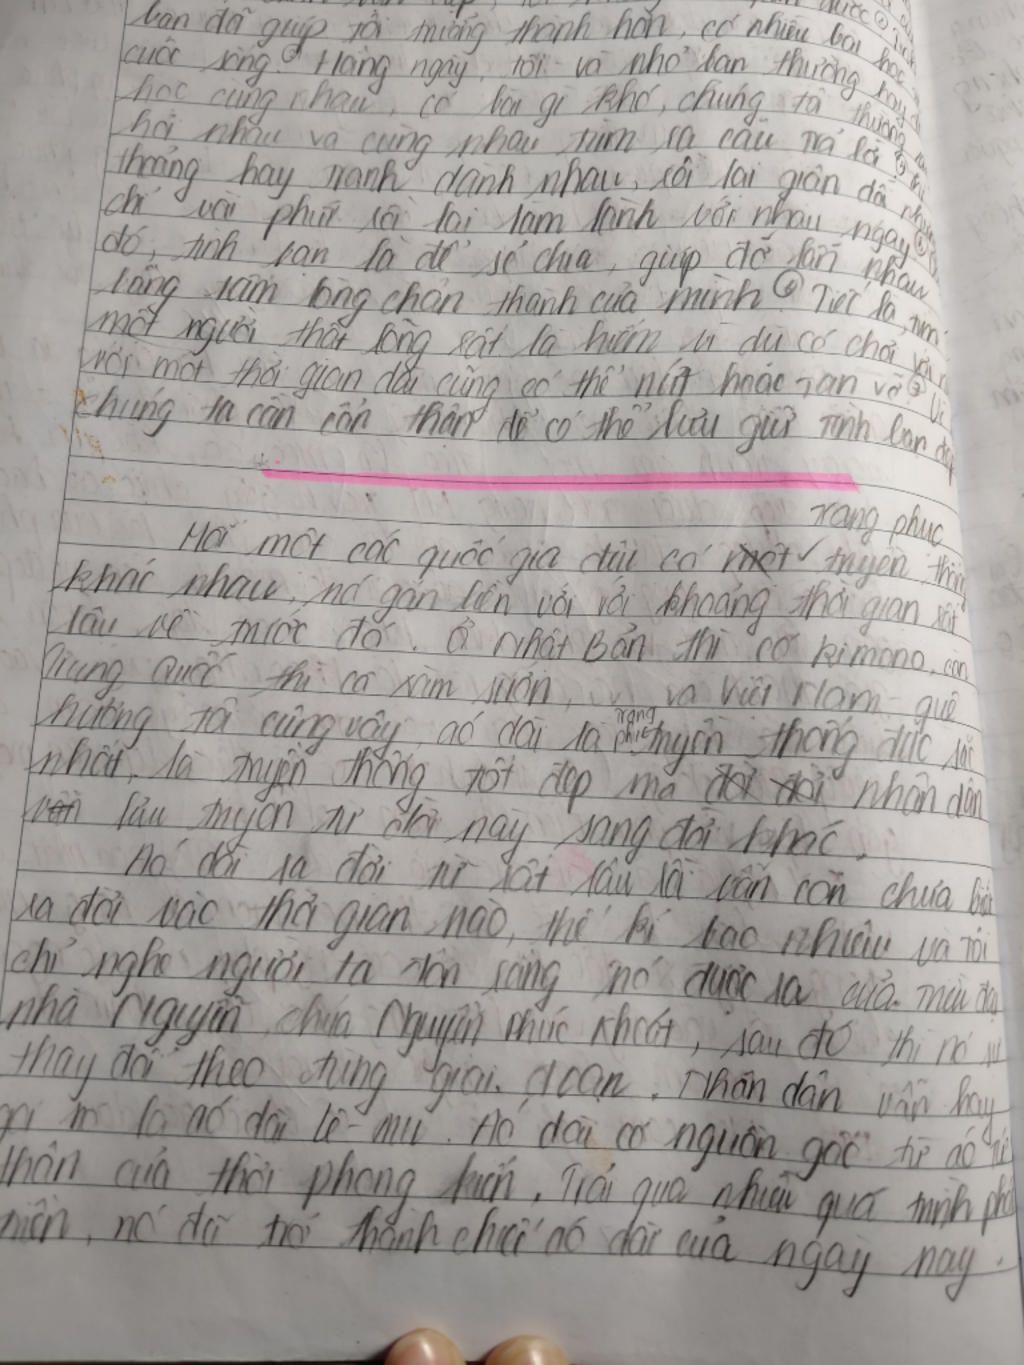 bạn đã giúp tôi trưởng thành hơn, có nhiều bài học
cuộc sống. Hàng ngày, tôi và nhỏ bạn thường hay
học cùng nhau, có bài gì khó, chúng ta thường
hỏi nhau và cùng nhau tìm ra câu trả lời
thoảng hay tranh dành nhau, rồi lại giận dỗi
chỉ vài phút rồi lại làm lành với nhau ngay ⑤
đó, tình bạn là để sẻ chia, giúp đỡ lẫn nhau
bằng tấm lòng chân thành của mình ⑥ Tiếc là, tìm
một người thật lòng rất là hiếm vì dù có chơi
với một thời gian dài cũng có thể nứt hoặc tan vỡ ⑦ Vì
chúng ta cần cẩn thận để có thể lưu giữ tình bạn đẹp
trang phục
Mỗi một các quốc gia đều có một truyền thống
khác nhau, nó gắn liền với với khoảng thời gian rất
lâu về trước đó. Ở Nhật Bản thì có kimono, còn
Trung Quốc thì có xường xám, và Việt Nam - quê
hương tôi cũng vậy, áo dài là trang phục truyền thống đặc sắc
nhất, là truyền thống tốt đẹp mà nhân dân
lưu truyền từ đời này sang đời khác.
Áo dài ra đời từ rất lâu rồi vẫn còn chưa biết
ra đời vào thời gian nào, thế kỉ bao nhiêu và tôi
chỉ nghe người ta đồn rằng nó được ra của
nhà Nguyễn, chúa Nguyễn Phúc Khoát, sau đó thì nó
thay đổi theo từng giai đoạn. Nhân dân vẫn hay
gọi nó là áo dài lê-mu. Áo dài có nguồn gốc từ áo tứ
thân của thời phong kiến. Trải qua nhiều quá trình phát
triển, nó đã trở thành chiếc áo dài của ngày nay.